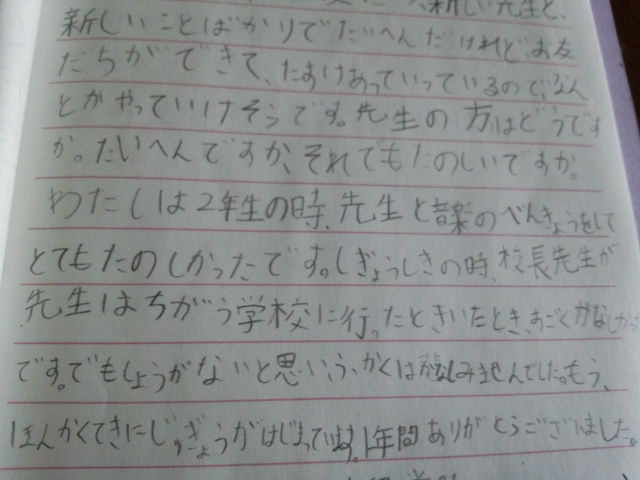 新しい先生と、
新しいことばかりでたいへんだけれど、お友
だちができて、たすけあっていっているので、なん
とかやっていけそうです。先生の方はどうです
か。たいへんですか、それでもたのしいですか。
わたしは2年生の時、先生と音楽のべんきょうをして
とてもたのしかったです。しぎょうしきの時、校長先生が
先生はちがう学校に行ったときいたとき、すごくかなしかった
です。でもしょうがないと思い、ふかくは悲しみませんでした。もう、
ほんかくてきにじゅぎょうがはじまっています。1年間ありがとうございました。